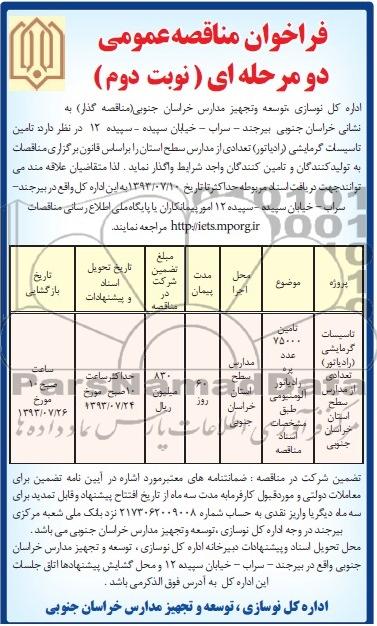 فراخوان مناقصه عمومی
دو مرحله ای ( نوبت دوم )
اداره کل نوسازی ،توسعه وتجهیز مدارس خراسان جنوبی(مناقصه گذار) به
نشانی خراسان جنوبی بیرجند – سراب – خیابان سپیده – سپیده ۱۲ در نظر دارد: تامین
تاسیسات گرمایشی (رادیاتور) تعدادی از مدارس سطح استان را براساس قانون برگزاری مناقصات
به تولیدکنندگان و تامین کنندگان واجد شرایط واگذار نماید . لذا متقاضیان علاقه مند می
توانندجهت دریافت اسناد مربوطه حداکثر تا تاریخ ۱۳۹۳/۰۷/۱۰به این اداره کل واقع در بیرجند–
سراب – خیابان سپیده –سپیده ۱۲ امور پیمانکاران یا پایگاه ملی اطلاع رسانی مناقصات
http://iets.mporg.ir مراجعه نمایند.
پروژه
موضوع
محل
اجرا
مدت
پیمان
مبلغ
تضمین
شرکت
در
مناقصه
تاریخ تحویل
اسناد
و پیشنهادات
تاریخ
بازگشایی
تاسیسات
گرمایشی
(رادیاتور)
تعدادی
از مدارس
سطح
استان
خراسان
جنوبی
تامین
۷۵۰۰۰
عدد
پره
رادیاتور
آلومینیومی
طبق
مشخصات
اسناد
مناقصه
مدارس
سطح
استان
خراسان
جنوبی
۶۰
روز
۸۳۰
میلیون
ریال
حداکثر ساعت
۱۰صبح مورخ
۱۳۹۳/۰۷/۲۴
ساعت
۱۰ صبح
مورخ
۱۳۹۳/۰۷/۲۶
تضمین شرکت در مناقصه : ضمانتنامه های معتبرمورد اشاره در آیین نامه تضمین برای
معاملات دولتی و موردقبول کارفرمابه مدت سه ماه از تاریخ افتتاح پیشنهاد وقابل تمدید برای
سه ماه دیگریا واریز نقدی به حساب شماره ۲۱۷۳۰۶۲۰۰۹۰۰۸ نزد بانک ملی شعبه مرکزی
بیرجند در وجه اداره کل نوسازی ،توسعه و تجهیز مدارس خراسان جنوبی می باشد .
محل تحویل اسناد وپیشنهادات دبیرخانه اداره کل نوسازی ، توسعه و تجهیز مدارس خراسان
جنوبی واقع در بیرجند – سراب – خیابان سپیده ۱۲ و محل گشایش پیشنهادها اتاق جلسات
این اداره کل به آدرس فوق الذکرمی باشد .
اداره کل نوسازی ، توسعه و تجهیز مدارس خراسان جنوبی